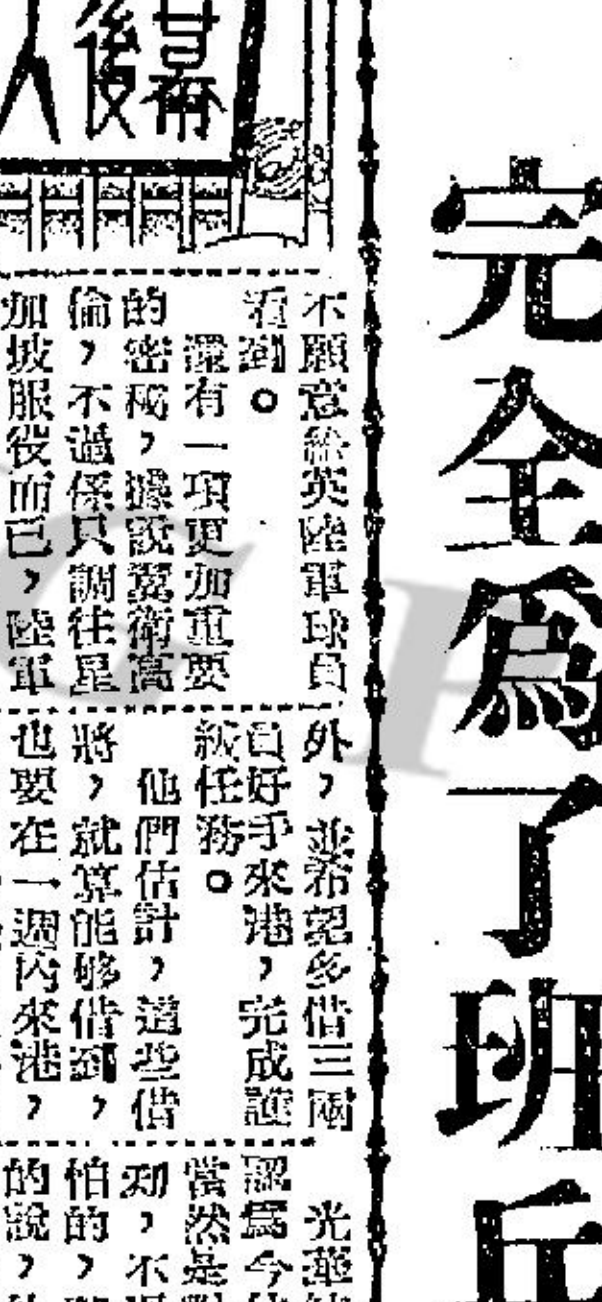 完全為了班兵
幕後人
不願意給英陸軍球員
看到。
還有一項更加重要
的密祕，據說翼衛高
倫，不過係只調往星
加坡服役而已，陸軍
外，並希望多借三兩
員好手來港，完成護
級任務。
他們估計，這些借
將，就算能够借到，
也要在一週內來港，
光華
認為今
當然是
刻，不
怕的，
的說，